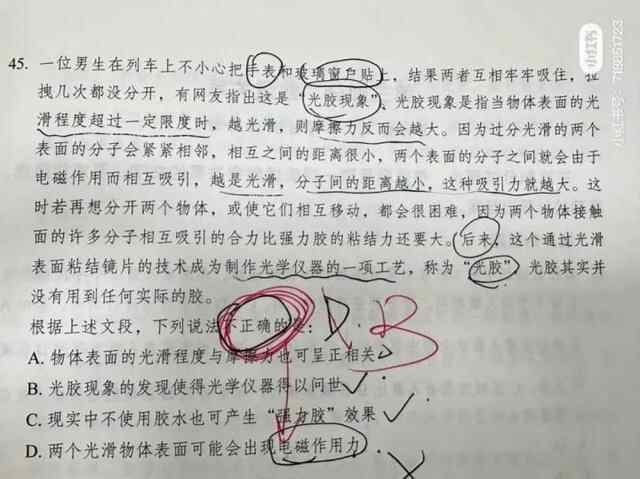 小红书
小红书号：719851723
45. 一位男生在列车上不小心把手表和玻璃窗户贴上，结果两者互相牢牢吸住，拉
拽几次都没分开，有网友指出这是“光胶现象”。光胶现象是指当物体表面的光
滑程度超过一定限度时，越光滑，则摩擦力反而会越大。因为过分光滑的两个
表面的分子会紧紧相邻，相互之间的距离很小，两个表面的分子之间就会由于
电磁作用而相互吸引，越是光滑，分子间的距离越小，这种吸引力就越大。这
时若再想分开两个物体，或使它们相互移动，都会很困难，因为两个物体接触
面的许多分子相互吸引的合力比强力胶的粘结力还要大。后来，这个通过光滑
表面粘结镜片的技术成为制作光学仪器的一项工艺，称为“光胶”，光胶其实并
没有用到任何实际的胶。
根据上述文段，下列说法不正确的是：D. B
A. 物体表面的光滑程度与摩擦力也可呈正相关
B. 光胶现象的发现使得光学仪器得以问世
C. 现实中不使用胶水也可产生“强力胶”效果
D. 两个光滑物体表面可能会出现电磁作用力